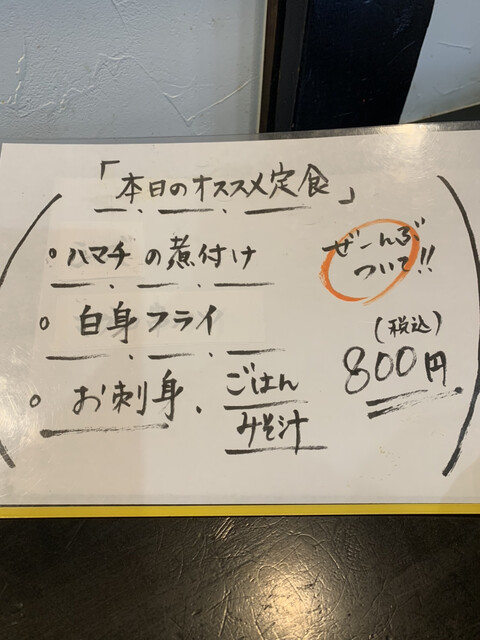 「本日のオススメ定食」
・ハマチの煮付け
・白身フライ
・お刺身、ごはん
みそ汁
ぜーんぶ
ついて!!
(税込)
800円